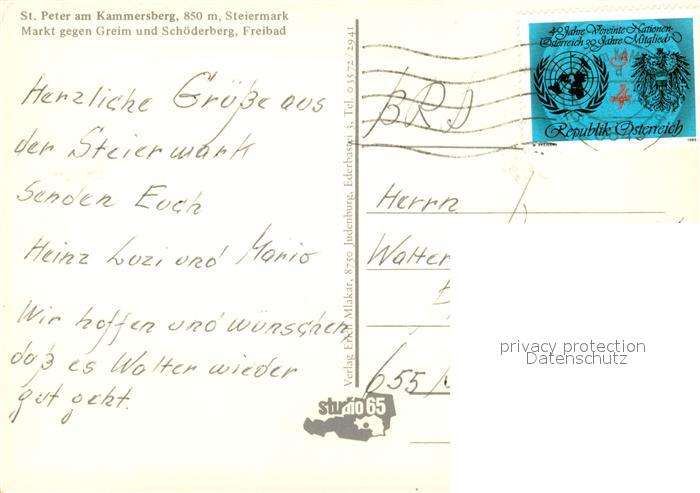 St. Peter am Kammersberg, 850 m, Steiermark
Markt gegen Greim und Schöderberg, Freibad
Herzliche Grüße aus
der Steiermark
Senden Euch
Heinz Luzi und Mario
Wir hoffen und wünschen
daß es Walter wieder
gut geht.
Verlag Erich Mlakar, 8750 Judenburg, Ederbastei 3, Tel. 0 35 72 / 29 41
studio 65
40 Jahre Vereinte Nationen-
Österreich 30 Jahre Mitglied
S 4
Republik Österreich
BRD
Herrn
Walter
655
privacy protection
Datenschutz